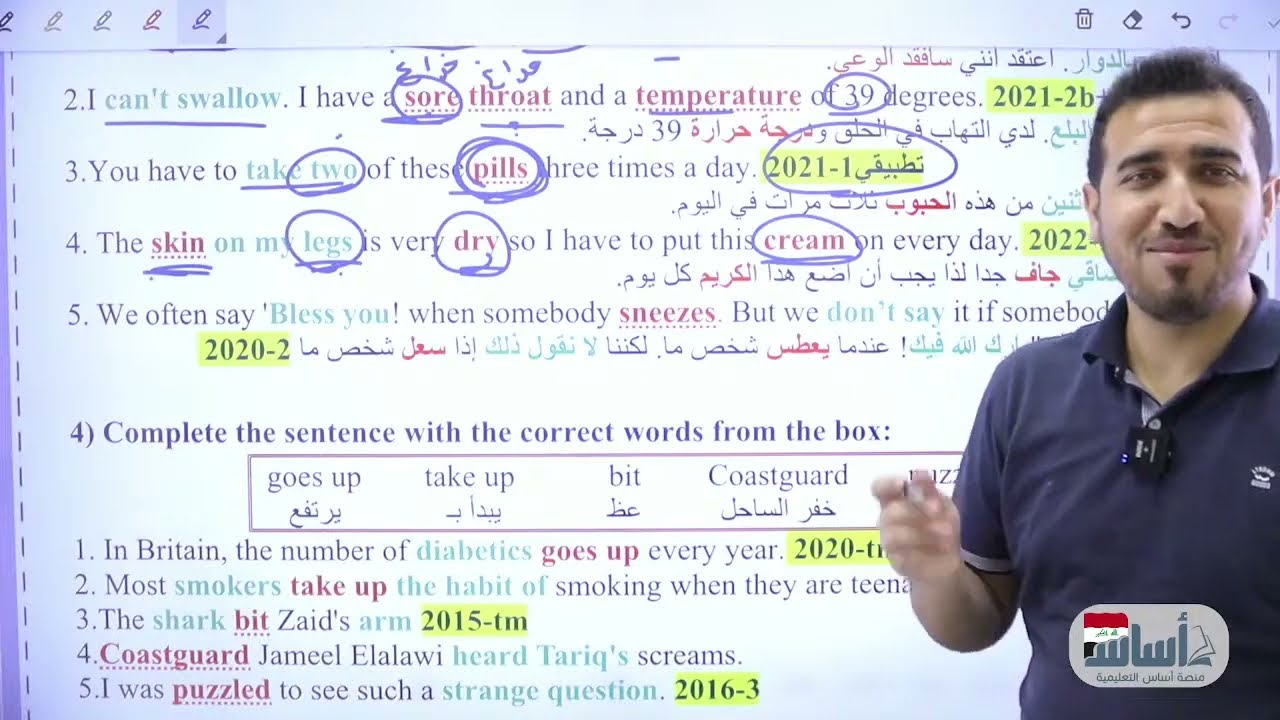 بالدوار. اعتقد انني سافقد الوعي.
2.I can't swallow. I have a sore throat and a temperature of 39 degrees. 2021-2b
البلع. لدي التهاب في الحلق ودرجة حرارة 39 درجة.
3.You have to take two of these pills three times a day. 2021-1تطبيقي
ثنين من هذه الحبوب ثلاث مرات في اليوم.
4. The skin on my legs is very dry so I have to put this cream on every day. 2022-
ساقي جاف جدا لذا يجب أن أضع هذا الكريم كل يوم.
5. We often say 'Bless you! when somebody sneezes. But we don't say it if somebod
بارك الله فيك! عندما يعطس شخص ما. لكننا لا نقول ذلك إذا سعل شخص ما 2020-2
4) Complete the sentence with the correct words from the box:
goes up take up bit Coastguard puzz
يرتفع يبدأ بـ عظ خفر الساحل
1. In Britain, the number of diabetics goes up every year. 2020-t
2. Most smokers take up the habit of smoking when they are teena
3.The shark bit Zaid's arm 2015-tm
4.Coastguard Jameel Elalawi heard Tariq's screams.
5.I was puzzled to see such a strange question. 2016-3
أساس
منصة أساس التعليمية